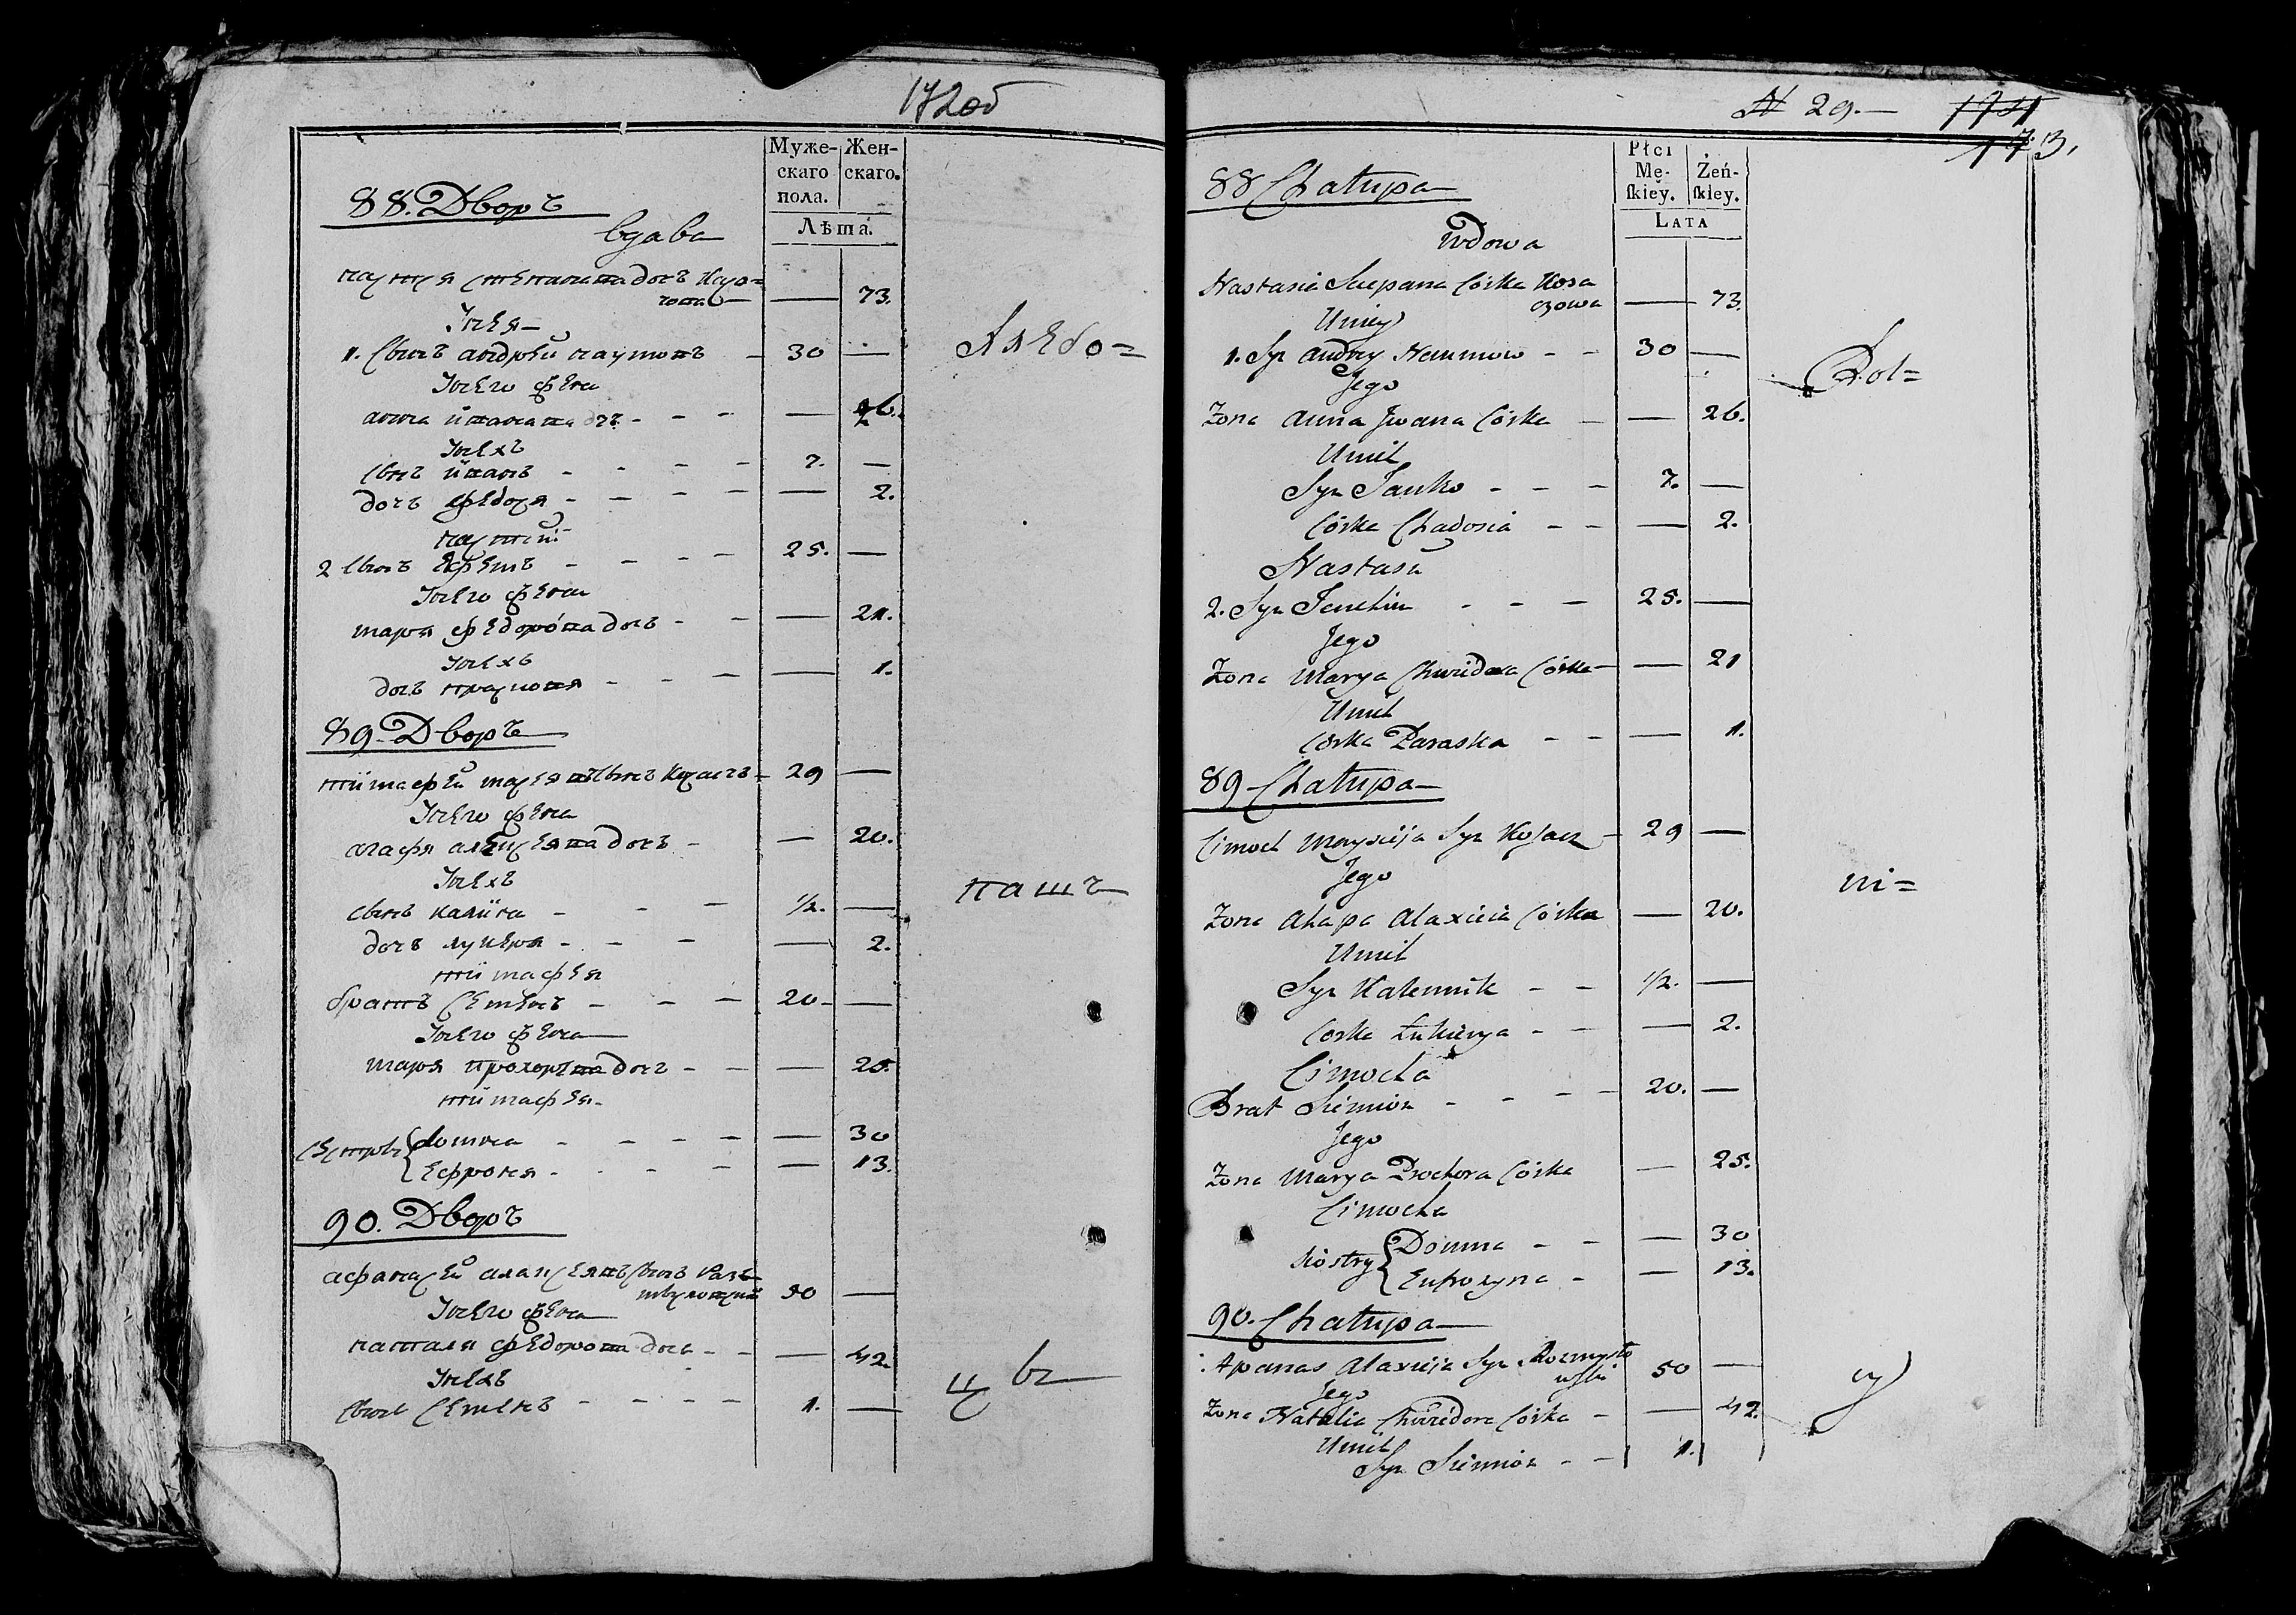 172об
Муже-
скаго
пола.
Жен-
скаго.
Лѣта.
88. Дворъ
вдава
настя степанова дочъ Касо-
чова — 73.
У нея
1. сынъ андрей наумовъ - 30 —
У него жена
анна иванова дочъ - - - — 26.
У нихъ
сынъ иванъ - - - - 7. —
дочъ федося - - - - — 2.
насти
2 сынъ ефимъ - - - - 25. —
У него жена
маря федорова дочъ - - — 21.
У нихъ
дочъ прасковя - - - — 1.
89. Дворъ
тимафей сынъ 29 —
У него жена
агафя алексѣява дочъ - — 20.
У нихъ
сынъ калина - - - 1/2. —
дочъ лукеря - - - — 2.
тимафея
братъ семенъ - - - 20 - —
У него жена
маря прохорова дочъ - - — 25.
тимафея
сестры { домна - - - - — 30
ефроня - - - - — 13.
90. Дворъ
афанасей сынъ
50 —
У него жена
наталя федорова дочъ - - — 42.
У нихъ
сынъ семенъ - - - - 1. —
Хлебо=
пашъ
цы
N 29.— 171
173,
Płci
Mę-
ſkiey.
Żeń-
ſkiey.
LATA
88 Chałupa
Wdowa
Nastasia Sciepana Córka Kosa
czowa — 73.
Uniey
1. Syn Andrey Naumow - - 30 —
Jego
Żona Anna Jwana Córka - — 26.
Unich
Syn Janko - - - 7. —
Córka Chadosia - - — 2.
Nastasii
2. Syn - - - 25. —
Jego
Żona Marya Chwiedora Córka — 21
Unich
Córka Paraska - - — 1.
89 Chałupa
Cimoch Syn - 29 —
Jego
Żona Ahapa Alaxieia Córka — 20.
Unich
Syn Kalennik - - 1/2. —
Corka Łukierya - - — 2.
Cimocha
Brat Siemion - - - - 20. —
Jego
Żona Marya Prochora Córka — 25.
Cimocha
Siostry { Domna - - — 30
Eufrozyna - — 13.
90. Chałupa
Apanas Alaxieja Syn Rozmysło
wski 50 —
Jego
Żona Natalia Chwiedora Córka - — 42.
Unich
Syn Siemion - - 1.
Rol=
ni=
cy